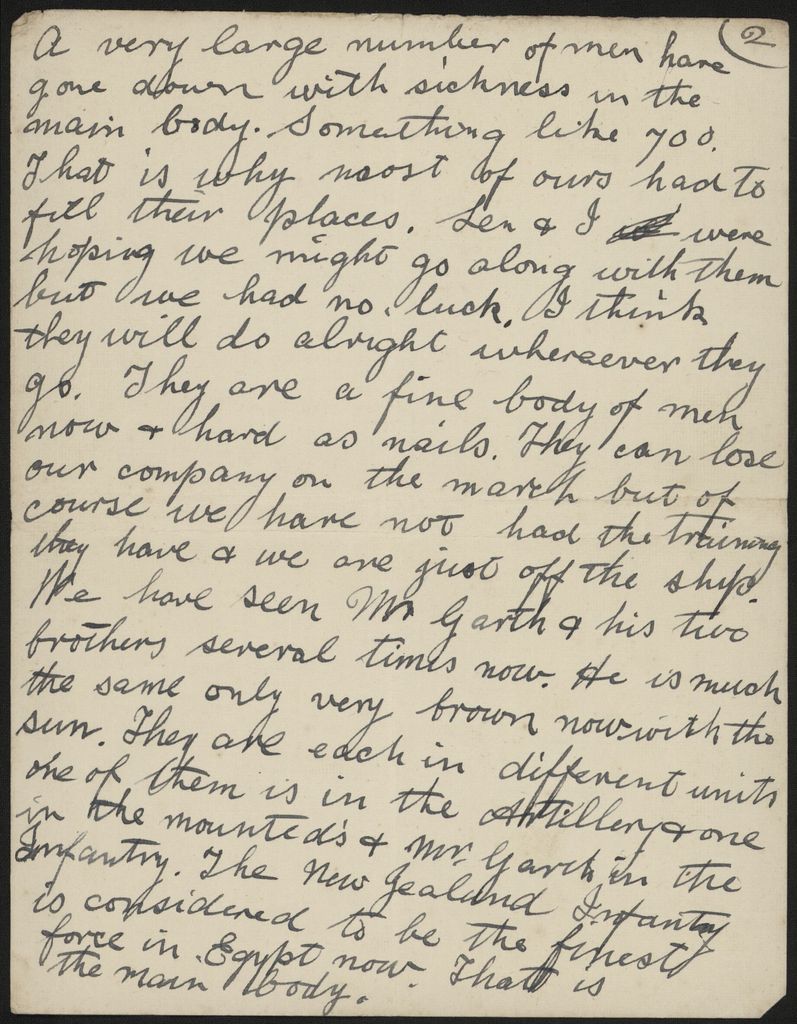 2
A very large number of men have
gone down with sickness in the
main body. Something like 700.
That is why most of ours had to
fill their places. Len & I were
hoping we might go along with them
but we had no luck. I think
they will do alright whereever they
go. They are a fine body of men
now & hard as nails. They can lose
our company on the march but of
course we have not had the training
they have & we are just off the ship.
We have seen Mr Garth & his two
brothers several times now. He is much
the same only very brown now with the
sun. They are each in different units
one of them is in the Artillery & one
in the mounteds & Mr. Garth in the
Infantry. The New Zealand Infantry
is considered to be the finest
force in Egypt now. That is
the main body.